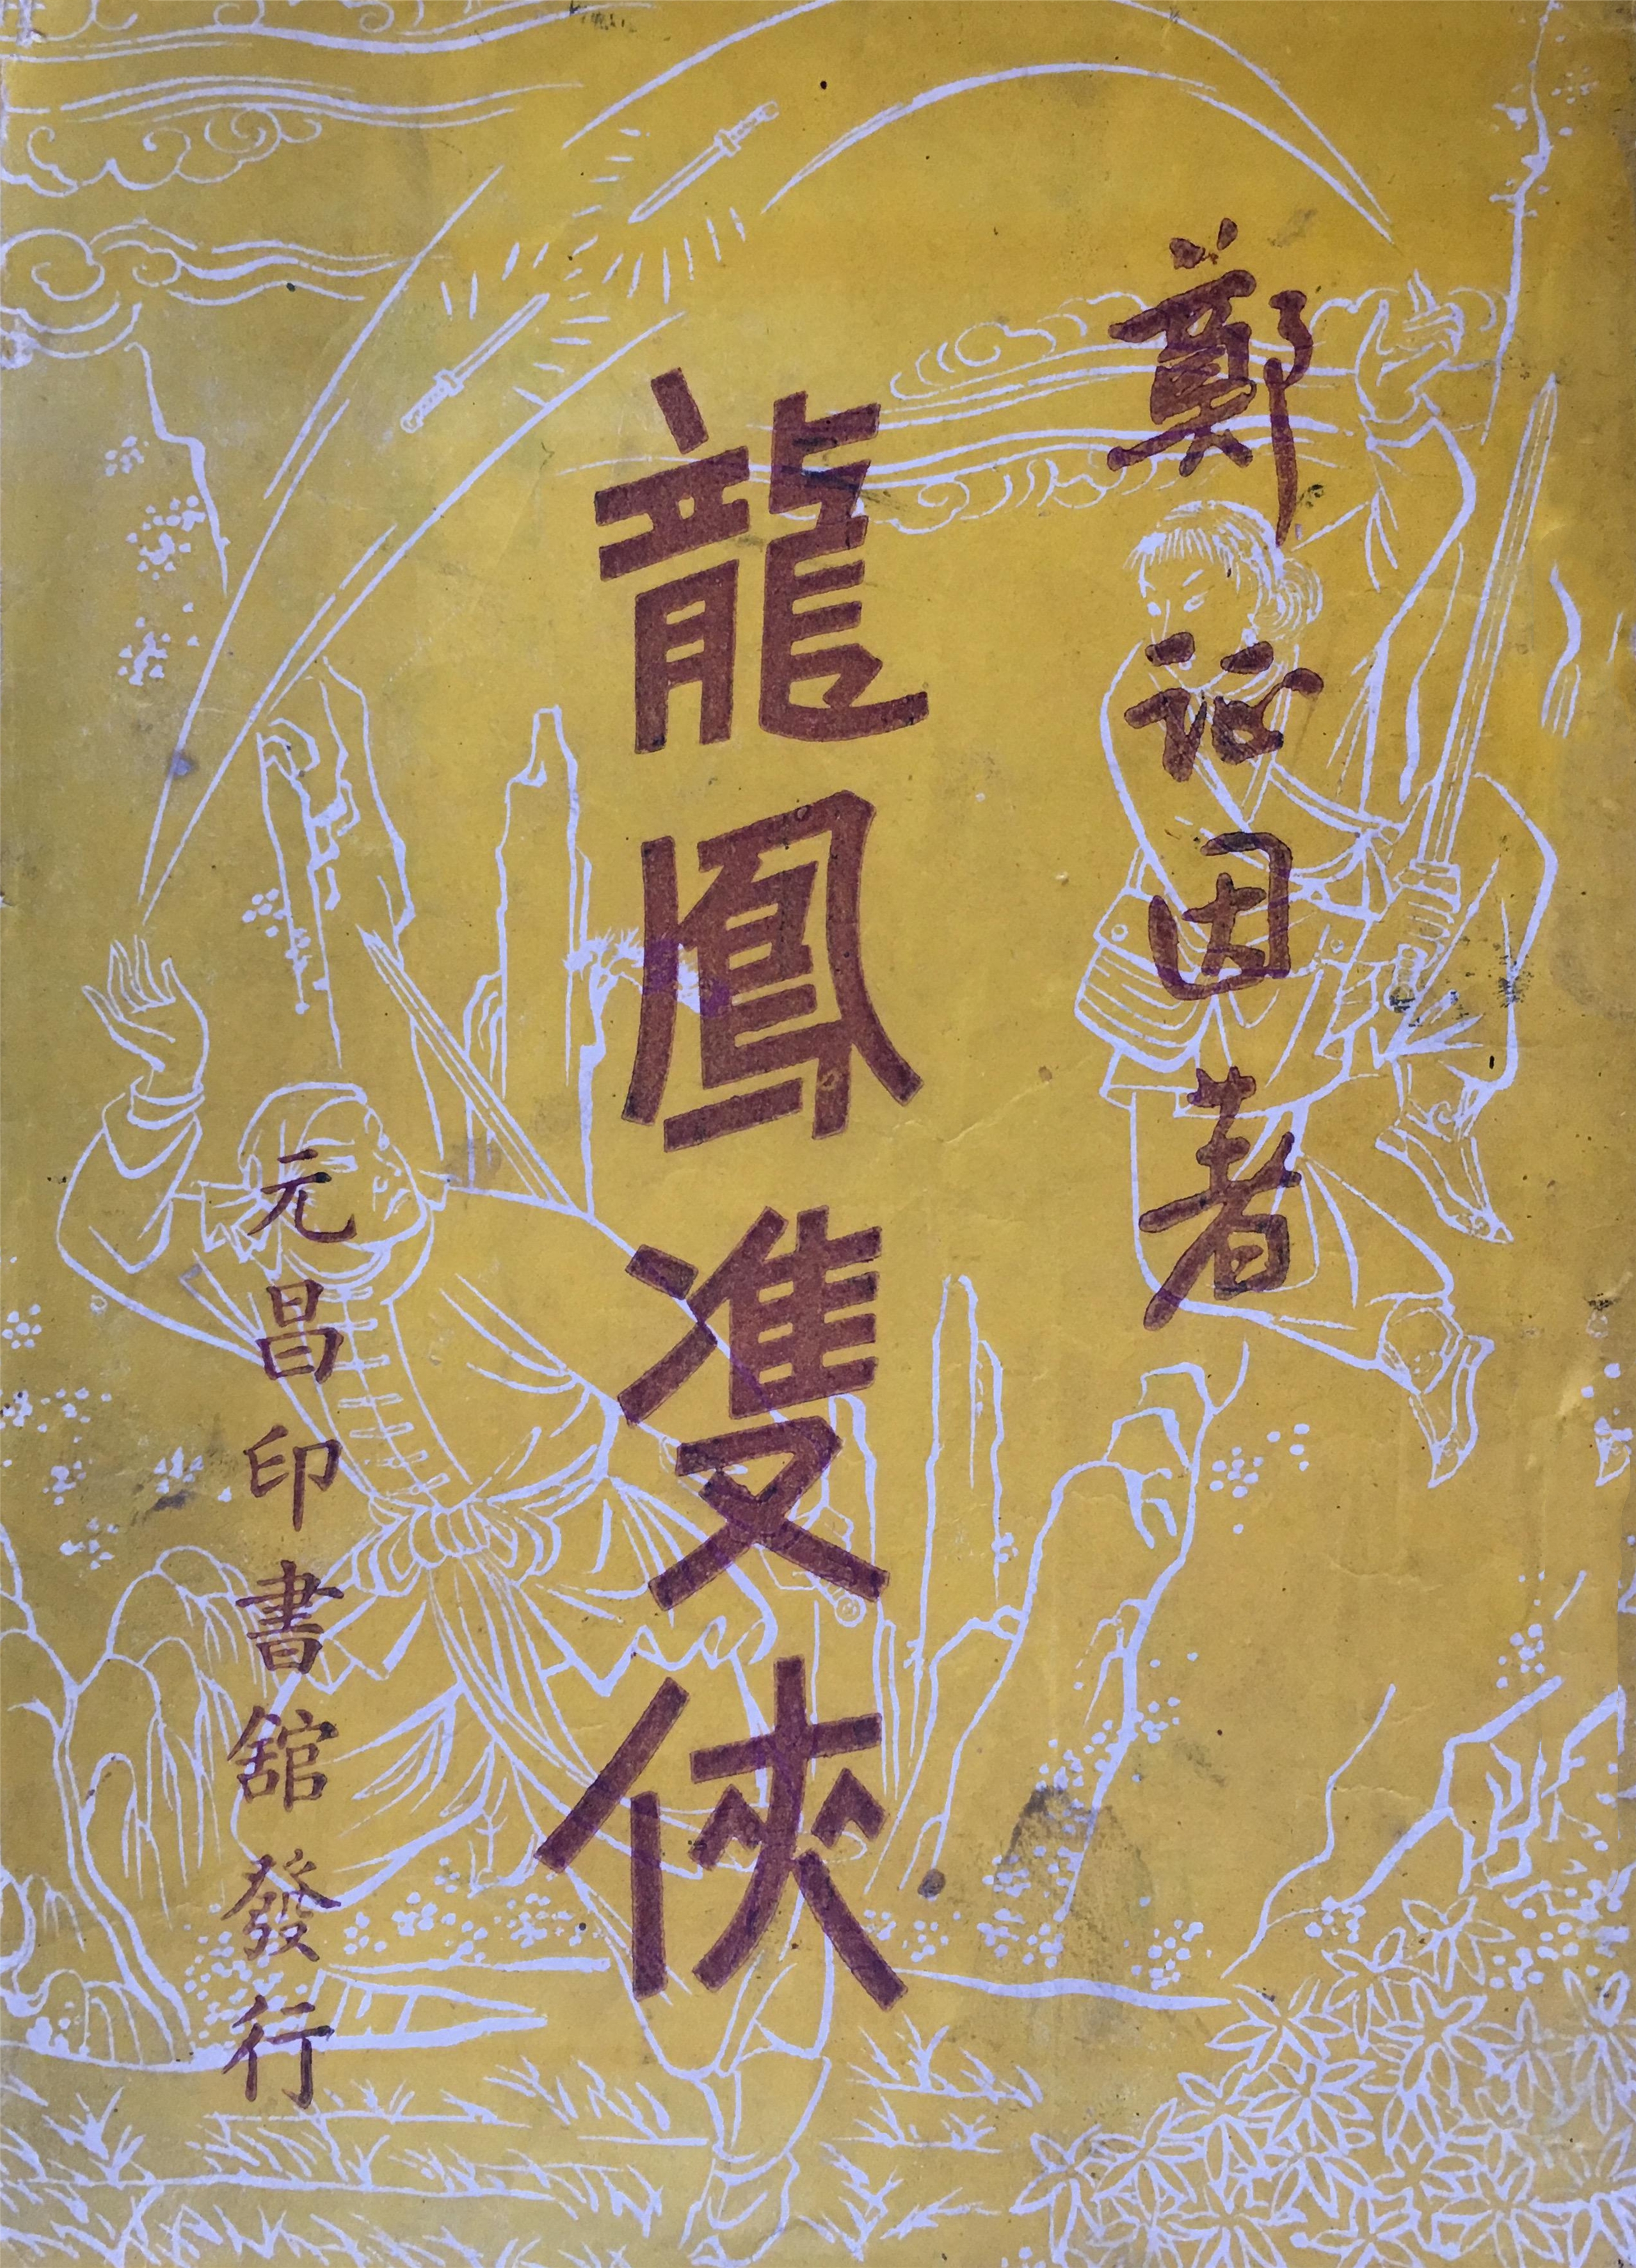 鄭証因著
龍鳳雙俠
元昌印書舘發行